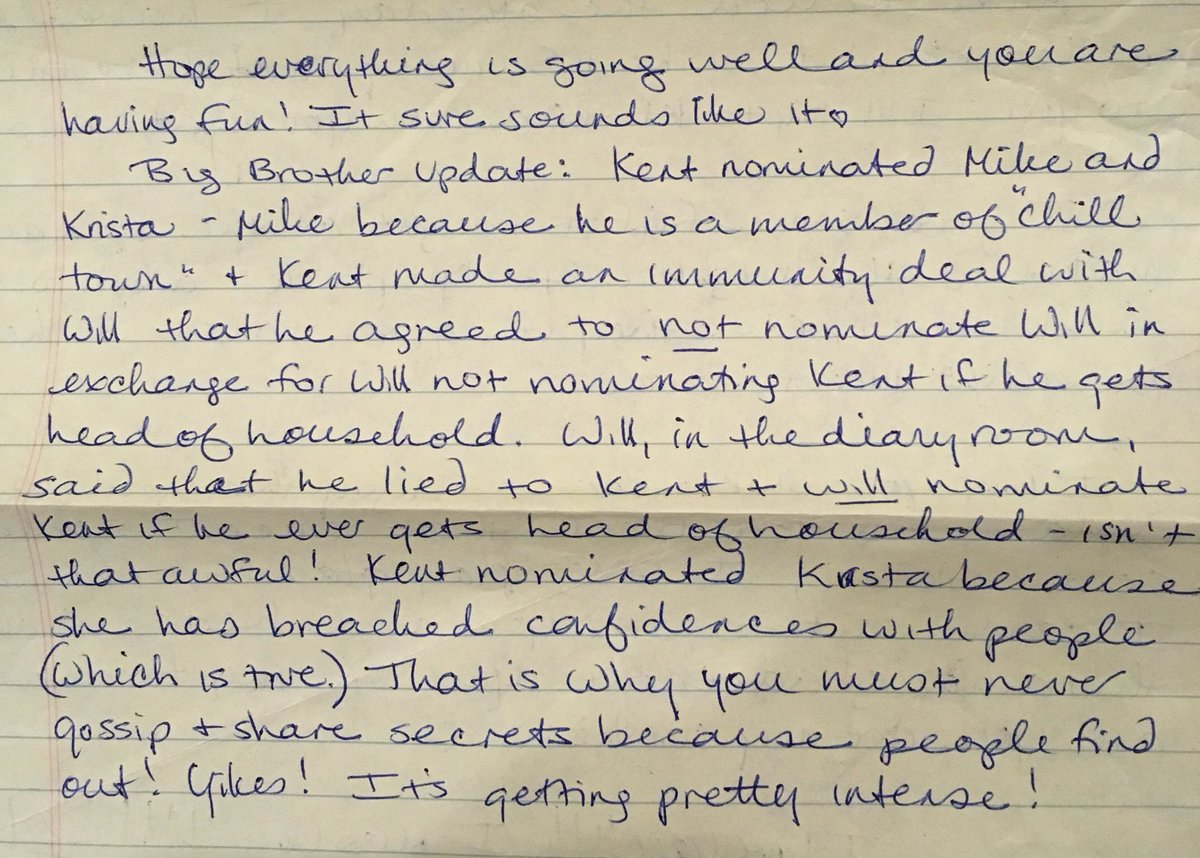 Hope everything is going well and you are
having fun! It sure sounds like it♡
Big Brother Update: Kent nominated Mike and
Krista - Mike because he is a member of "chill
town" + Kent made an immunity deal with
Will that he agreed to not nominate Will in
exchange for Will not nominating Kent if he gets
head of household. Will, in the diary room,
said that he lied to Kent + will nominate
Kent if he ever gets head of household - isn't
that awful! Kent nominated Krista because
she has breached confidences with people
(which is true.) That is why you must never
gossip + share secrets because people find
out! Yikes! It's getting pretty intense!